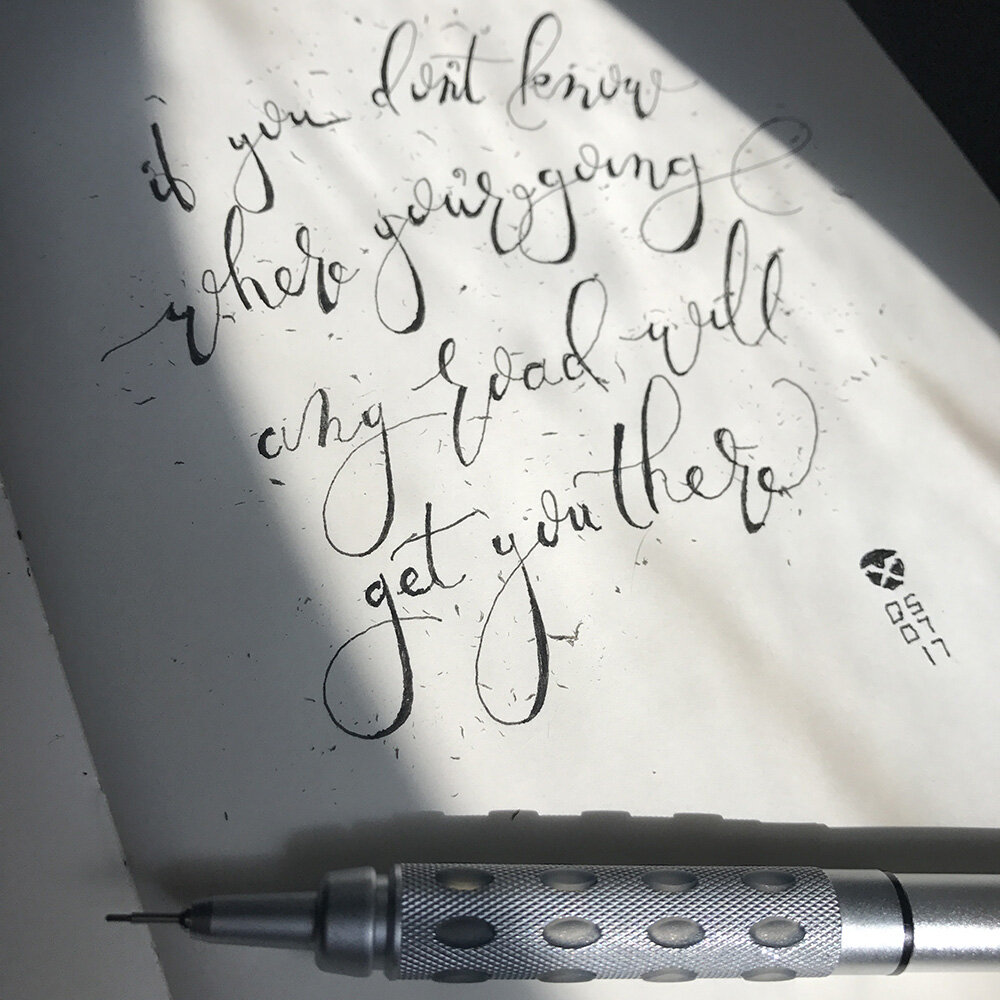 if you don't know
where your going
any road will
get you there